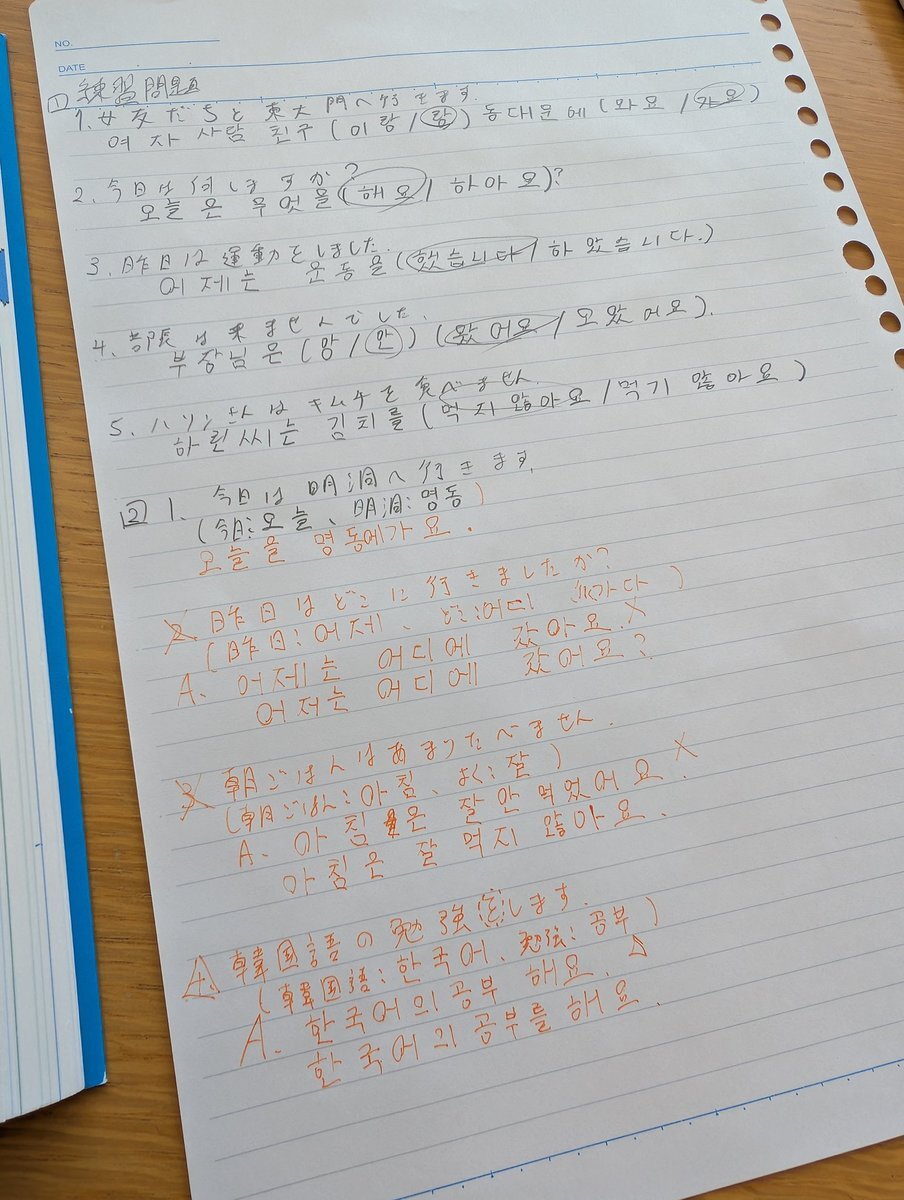 NO.
DATE
① 練習問題
1. 女友だちと東大門へ行きます.
여자 사람 친구 (이랑/랑) 동대문에 (와요/가요)
2. 今日は何しますか?
오늘은 무엇을 (해요/하아요)?
3. 昨日は運動をしました.
어제는 운동을 (했습니다/하았습니다.)
4. 部長は来ませんでした.
부장님은 (앙/안) (왔어요/오았어요).
5. ハリンさんはキムチを食べません.
하린씨는 김치를 (먹지 않아요/먹기 않아요)
② 1. 今日は明洞へ行きます.
(今日:오늘、明洞:명동)
오늘을 명동에가요.
2. 昨日はどこに行きましたか?
(昨日:어제、どこ:어디 가다)
A. 어제는 어디에 갔아요. ×
어저는 어디에 갔어요?
3. 朝ごはんはあまりたべません.
(朝ごはん:아침、よく:잘)
A. 아침은 잘 안 먹었어요. ×
아침은 잘 먹지 않아요.
4. 韓国語の勉強します.
(韓国語:한국어、勉強:공부)
A. 한국어의공부 해요. △
한국어의공부를 해요.